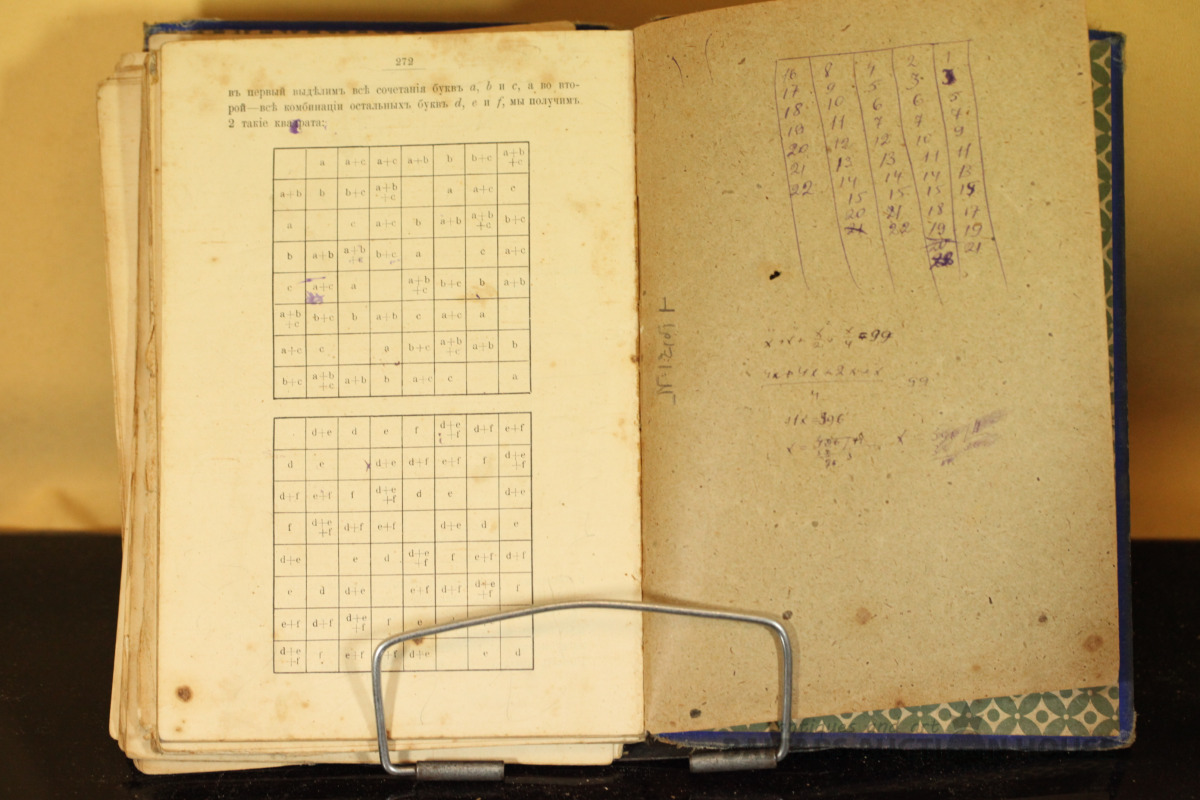 272
въ первый выдѣлимъ всѣ сочетанія буквъ a, b и c, а во вто-
рой—всѣ комбинаціи остальныхъ буквъ d, e и f, мы получимъ
2 такіе квадрата:
a a+c a+c a+b b b+c a+b+c
a+b b b+c a+b+c a a+c c
a c a+c b a+b a+b+c b+c
b a+b a+b+c b+c a c a+c
c a+c a a+b+c b+c b a+b
a+b+c b+c b a+b c a+c a
a+c c a b+c a+b+c a+b b
b+c a+b+c a+b b a+c c a
d+e d e f d+e+f d+f e+f
d e d+e d+f e+f f d+e+f
d+f e+f f d+e+f d e d+e
f d+e+f d+f e+f d+e d e
d+e e d d+e+f f e+f d+f
e d d+e e+f d+f d+e+f f
e+f d+f d+e+f f e
d+e+f f e+f d+e e d
16 8 4 2 1
17 9 5 3 3
18 10 6 6 5
19 11 7 7 7
20 12 12 10 9
21 13 13 11 11
22 14 14 14 13
15 15 15 15
20 21 18 17
21 22 19 19
21
=99
99
396